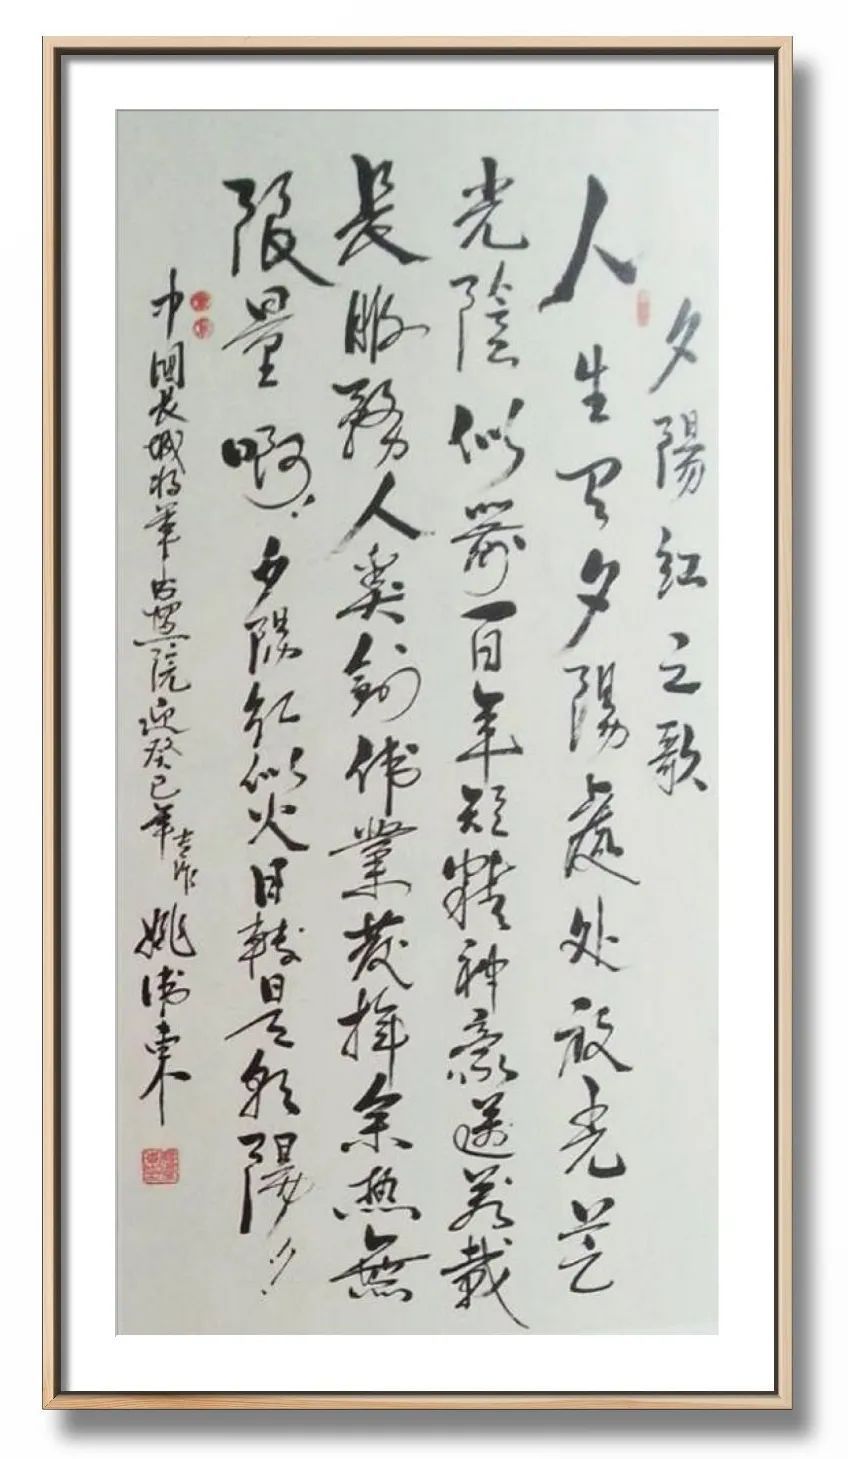 夕陽紅之歌
人生夕陽處处放光芒
光陰似箭百年短精神豪邁萬載
長服務人類創偉業發揮余熱無
限量啊！夕陽紅似火日轉是朝陽！
中國長城将軍書畫院迎癸巳年作姚偉東